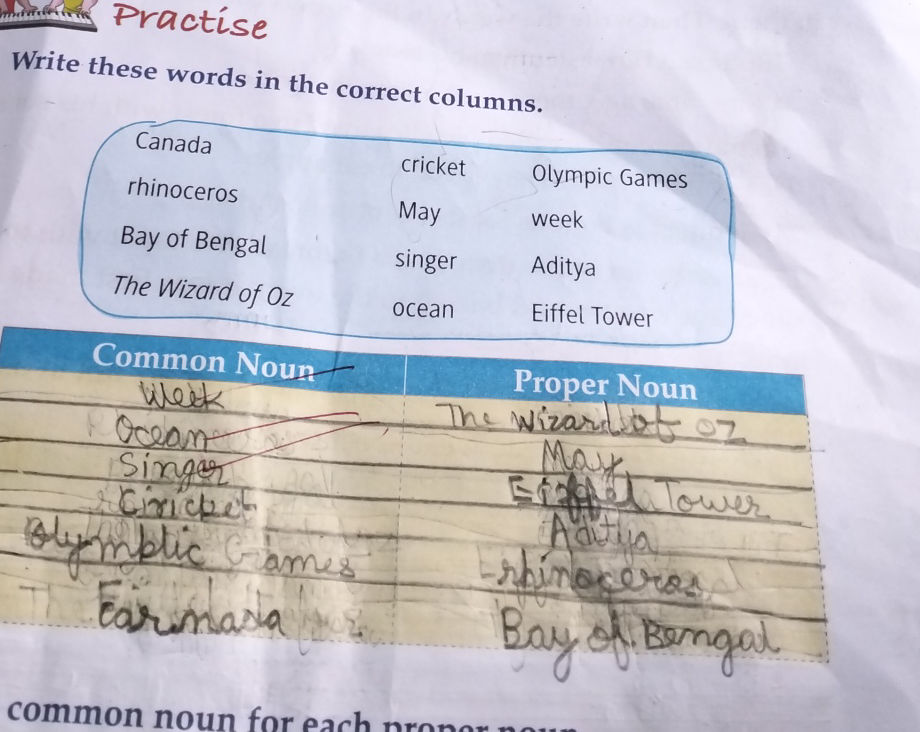 Practise
Write these words in the correct columns.
Canada
cricket
Olympic Games
rhinoceros
May
week
Bay of Bengal
singer
Aditya
The Wizard of Oz
ocean
Eiffel Tower
Common Noun
Proper Noun
Week
The Wizard of Oz
Ocean
May
Singer
Eiffel Tower
Cricket
Aditya
Olymptic Games
rhinoceros
Bay of Bengal
common noun for each proper noun